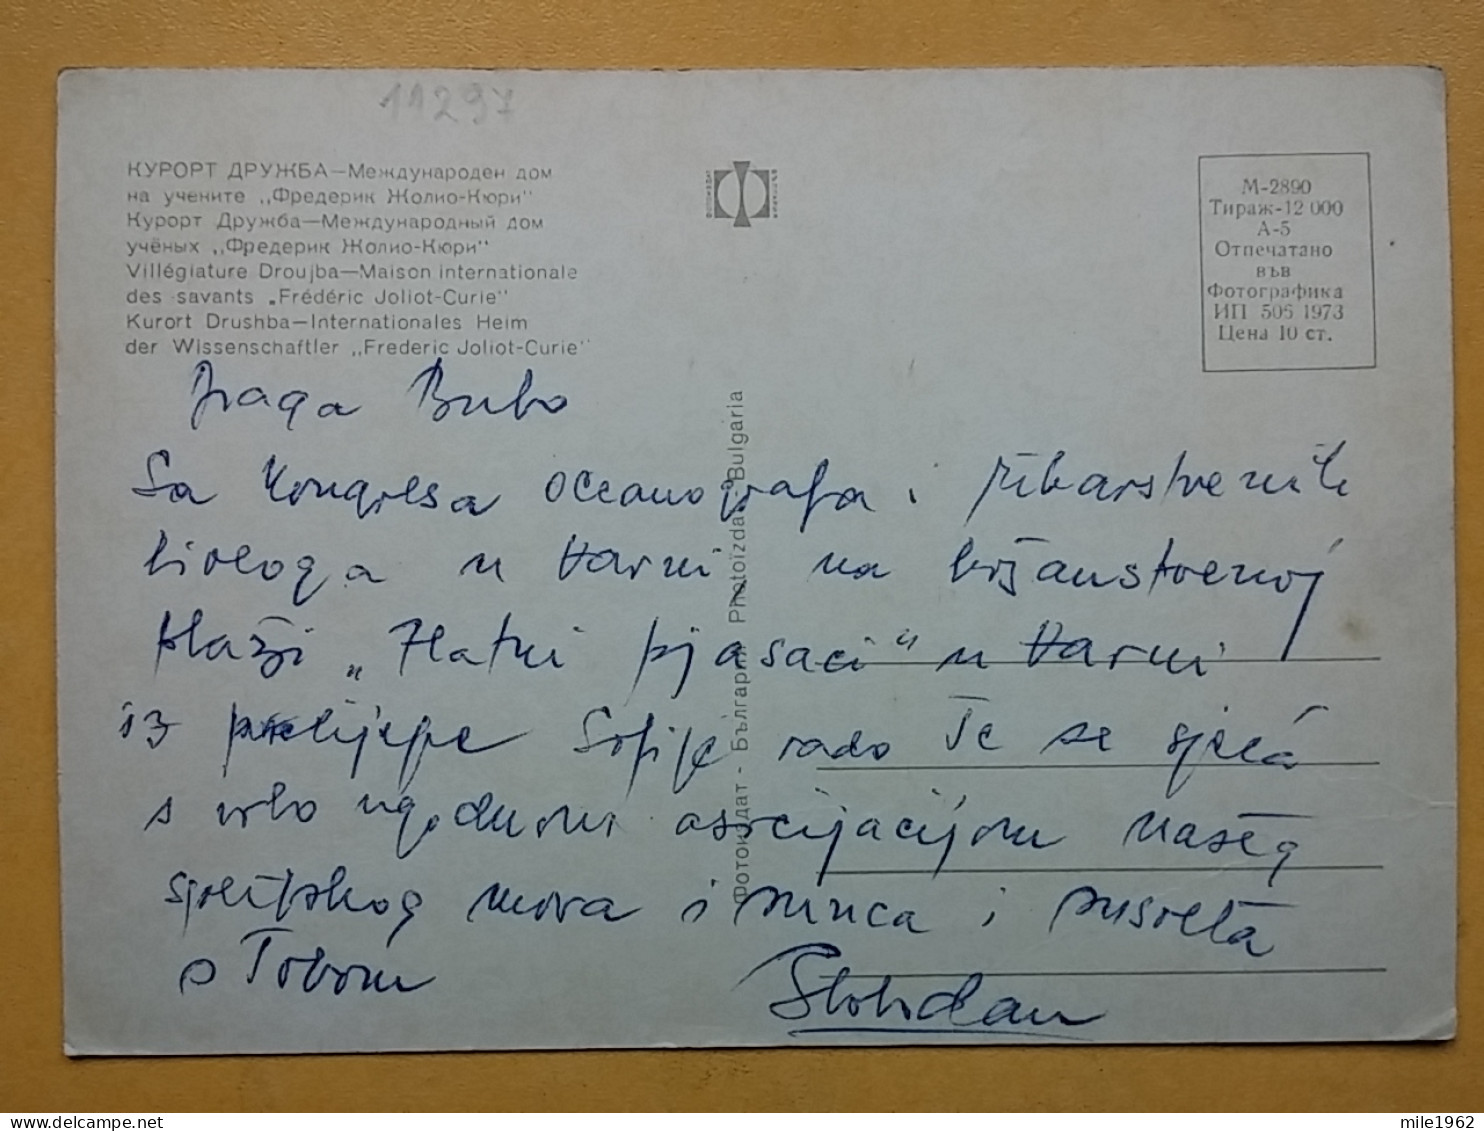 11297
КУРОРТ ДРУЖБА—Международен дом
на учените „Фредерик Жолио-Кюри"
Курорт Дружба—Международный дом
учёных „Фредерик Жолио-Кюри"
Villégiature Droujba—Maison internationale
des savants „Frédéric Joliot-Curie"
Kurort Drushba—Internationales Heim
der Wissenschaftler „Frederic Joliot-Curie"
М-2890
Тираж-12 000
А-5
Отпечатано
във
Фотографика
ИП 505 1973
Цена 10 ст.
Фотоиздат - България Photoizdat Bulgaria
Draga Bubo
Sa Kongresa oceanografa i ribarstvenih
biologa u Varni na božanstvenoj
plaži „Zlatni pjasaci" u Varni
iz prelijepe Sofije rado Te se sjeća
s vrlo ugodnom asocijacijom našeg
splitskog mora i sunca i susreta
s Tobom
Slobodan
mile1962